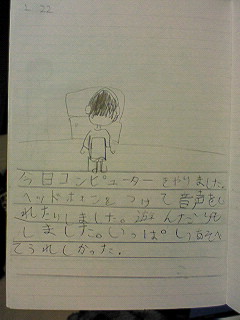 2.22
今日コンピューターをやりました。
ヘッドホンをつけて音声を
れたりしました。遊んだり
しました。いっぱい
てうれしかった。